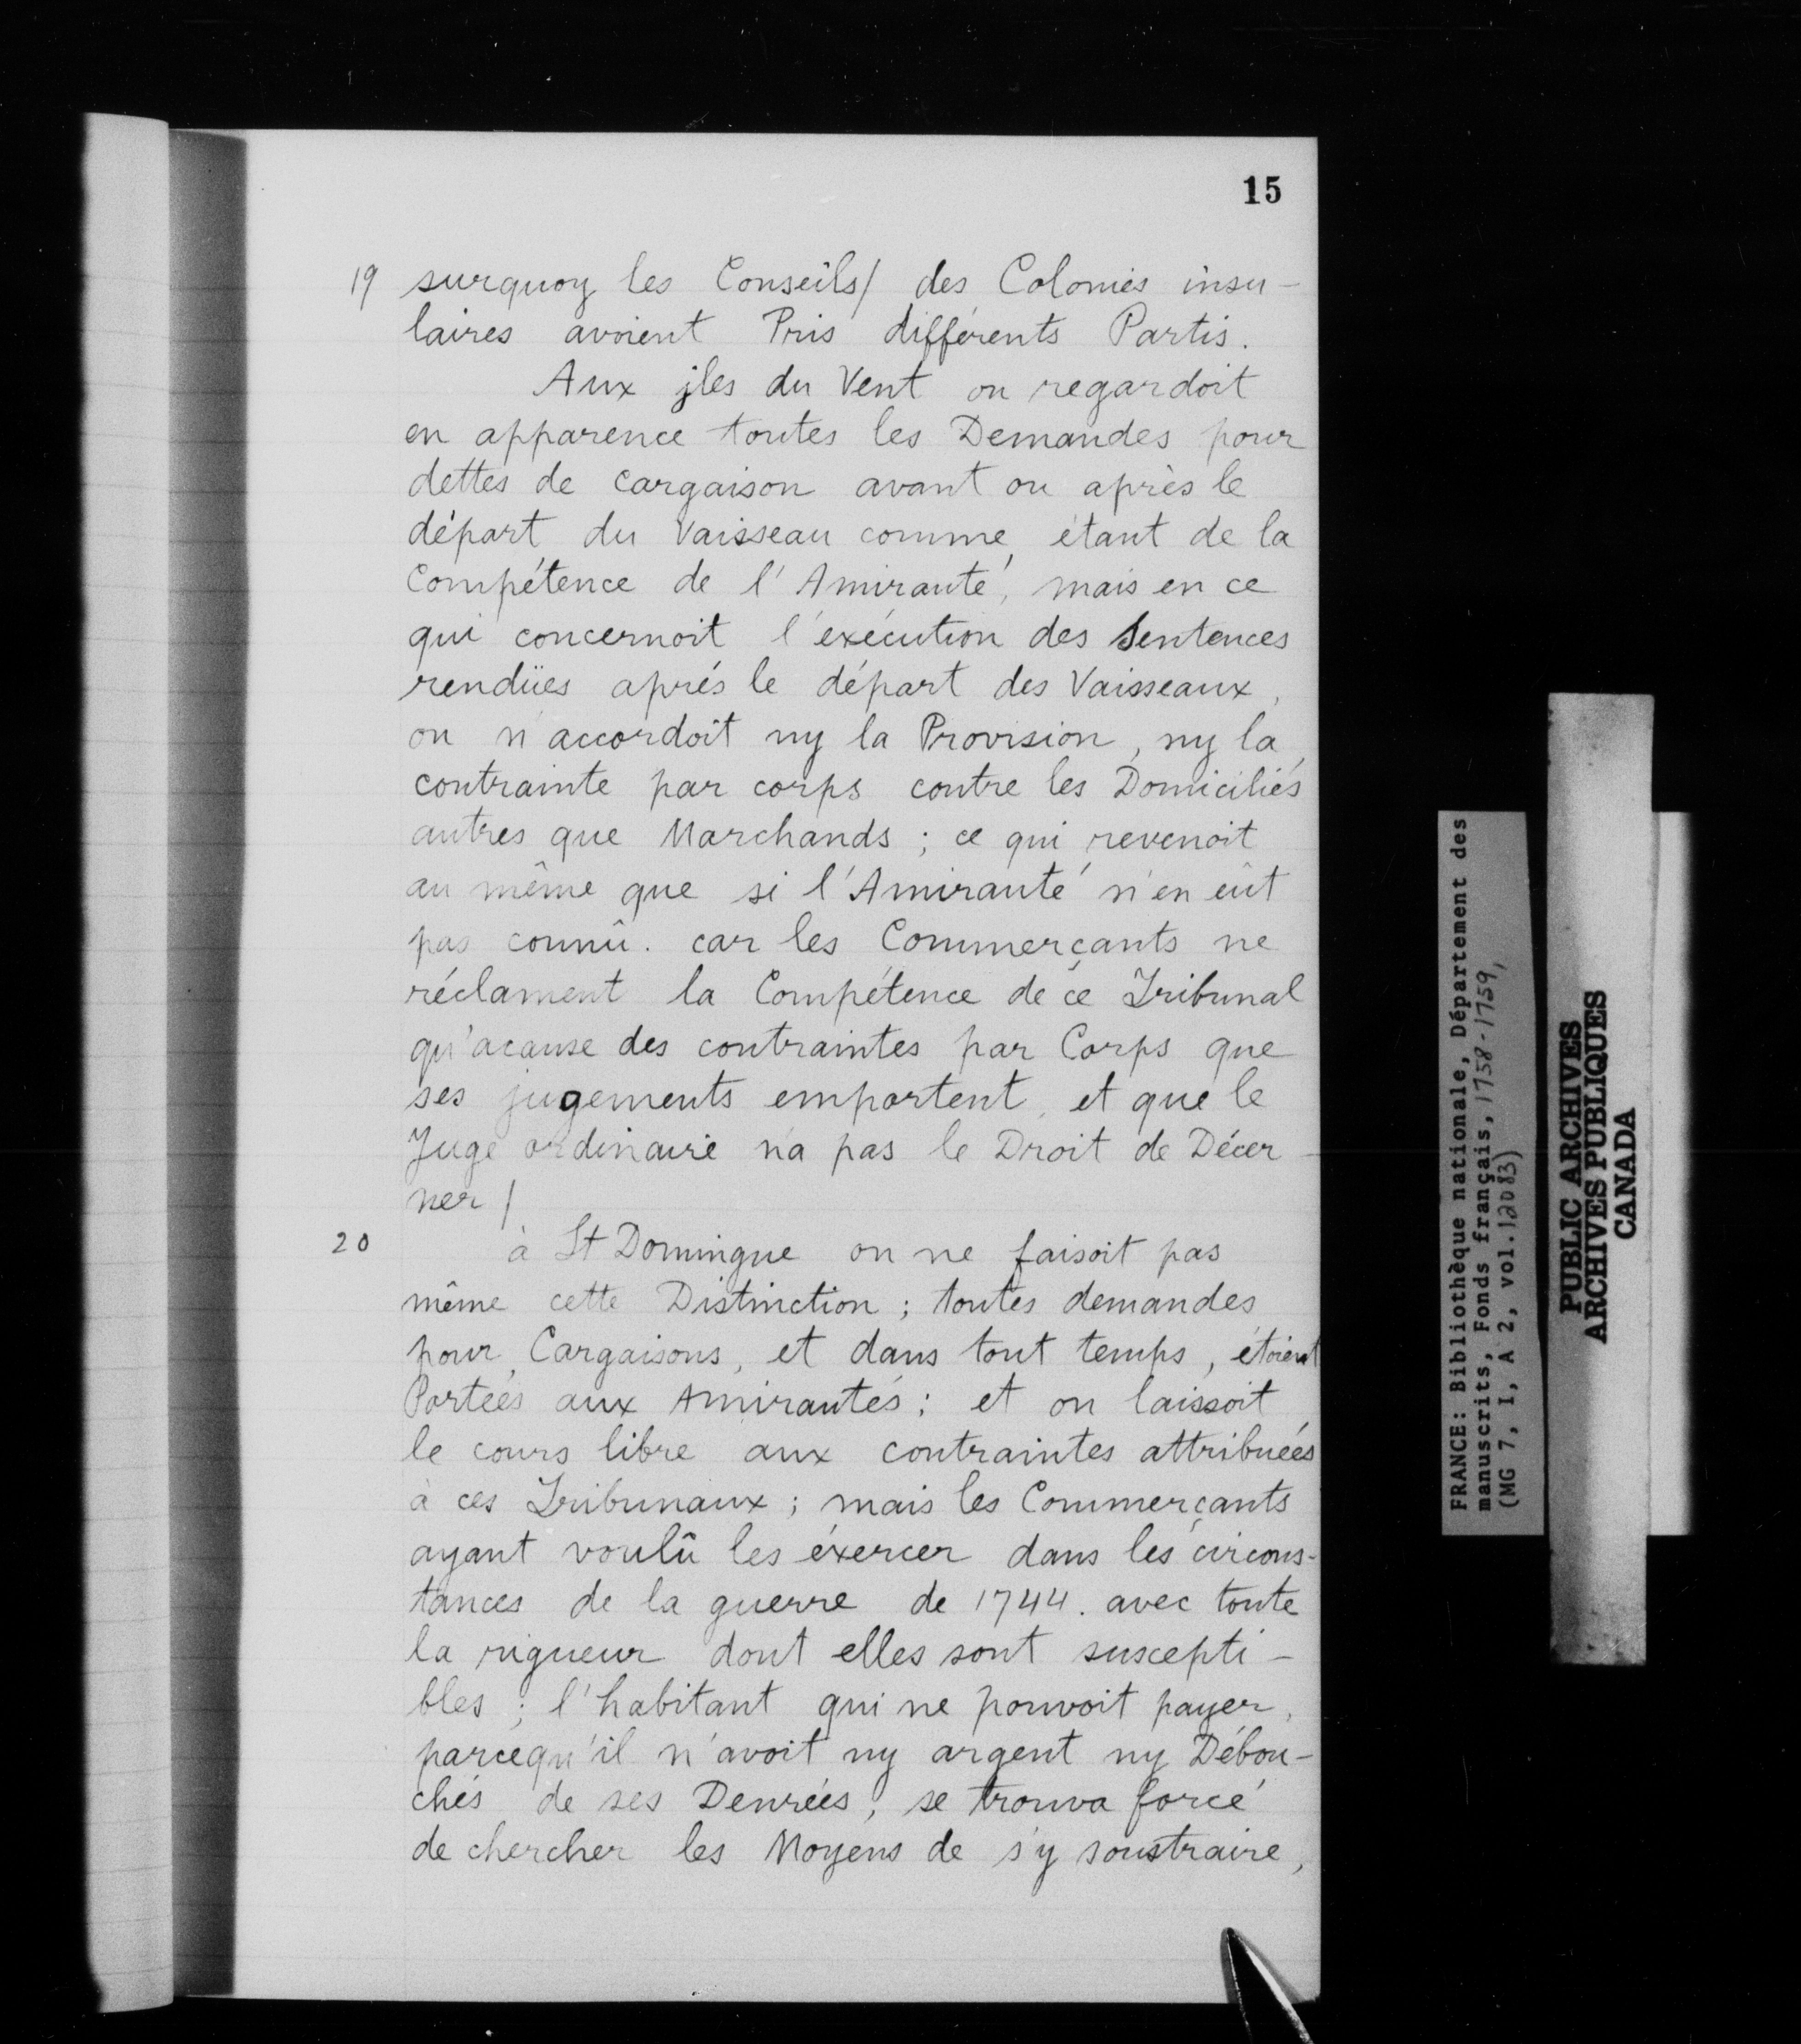 15
19 surquoy les Conseils/ des Colonies insu-
laires avoient Pris différents Partis.
Aux jles du Vent on regardoit
en apparence toutes les Demandes pour
dettes de Cargaison avant ou après le
départ du Vaisseau comme étant de la
Compétence de l'Amirauté, mais en ce
qui concernoit l'exécution des Sentences
rendües aprés le départ des Vaisseaux,
on n'accordoit ny la Provision, ny la
contrainte par corps contre les Domiciliés
autres que Marchands; ce qui revenoit
au même que si l'Amirauté n'en eût
pas connû. car les Commerçants ne
réclament la Compétence de ce Tribunal
qu'acause des contraintes par Corps que
ses jugements emportent, et que le
Juge ordinaire n'a pas le Droit de Décer-
ner /
20 à St Domingue on ne faisoit pas
même cette Distinction; toutes demandes
pour Cargaisons, et dans tout temps, étoient
Portées aux Amirautés; et on laissoit
le cours libre aux contraintes attribuées
à ces Tribunaux; mais les Commerçants
ayant voulû les éxercer dans les circons-
tances de la guerre de 1744. avec toute
la rigueur dont elles sont suscepti-
bles; l'habitant qui ne pouvoit payer,
parcequ'il n'avoit ny argent ny Débou-
chés de ses Denrées, se trouva forcé
de chercher les Moyens de s'y soustraire,
FRANCE: Bibliothèque nationale, Département des
manuscrits, Fonds français, 1758-1759,
(MG 7, I, A 2, vol. 12083)
PUBLIC ARCHIVES
ARCHIVES PUBLIQUES
CANADA